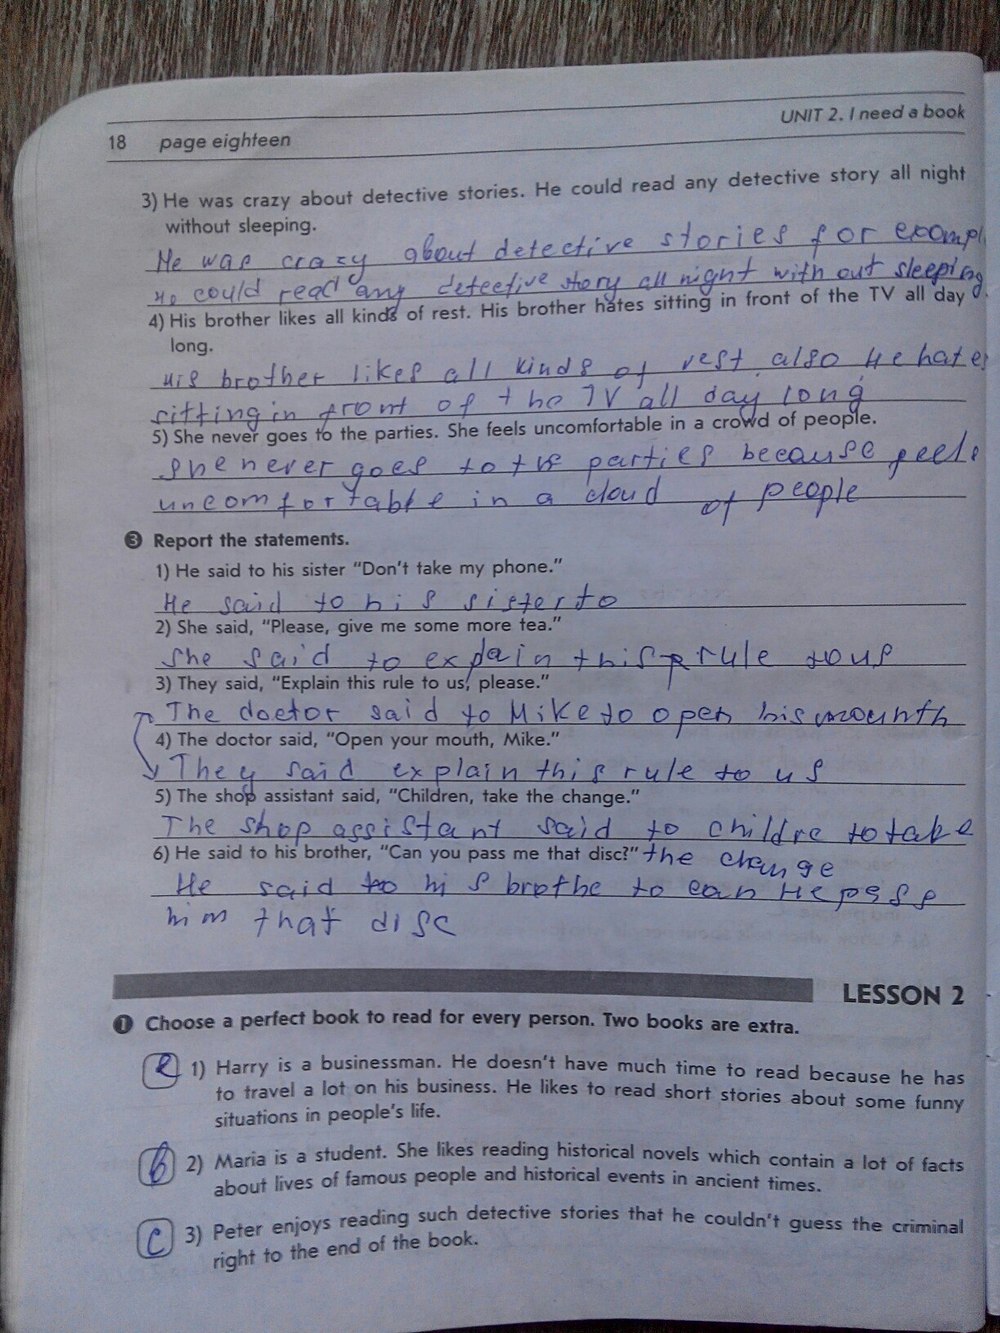 18 page eighteen
UNIT 2. I need a book
3) He was crazy about detective stories. He could read any detective story all night
without sleeping.
He was crazy about detective stories for exampl
He could read any detective story all night with out sleeping
4) His brother likes all kinds of rest. His brother hates sitting in front of the TV all day
long.
His brother likes all kinds of rest also He hates
sitting in front of the TV all day long
5) She never goes to the parties. She feels uncomfortable in a crowd of people.
She never goes to the parties because feels
uncomfortable in a cloud of people
3 Report the statements.
1) He said to his sister "Don't take my phone."
He said to his sister to
2) She said, "Please, give me some more tea."
She said to explain this rule to us
3) They said, "Explain this rule to us, please."
The doctor said to Mike to open his mounth
4) The doctor said, "Open your mouth, Mike."
They said explain this rule to us
5) The shop assistant said, "Children, take the change."
The shop assistant said to childre to take
6) He said to his brother, "Can you pass me that disc?" the change
He said to his brothe to can He pass
him that disc
LESSON 2
1 Choose a perfect book to read for every person. Two books are extra.
1) Harry is a businessman. He doesn't have much time to read because he has
to travel a lot on his business. He likes to read short stories about some funny
situations in people's life.
b 2) Maria is a student. She likes reading historical novels which contain a lot of facts
about lives of famous people and historical events in ancient times.
c 3) Peter enjoys reading such detective stories that he couldn't guess the criminal
right to the end of the book.